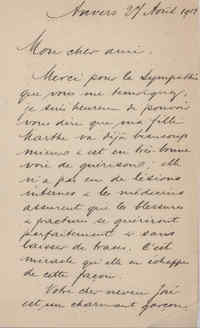 Anvers 27 Avril 19
Mon cher ami.
Merci pour la Sympathie
que vous me temoignez,
je suis heureux de pouvoir
vous dire que ma fille
Marthe va déjà beaucoup
mieux & est en très bonne
voie de guérison; elle
n'a pas eu de lésions
internes & les médecins
assurent que les blessures
& fracture se guériront
parfaitement & sans
laisser de traces. C'est
miracle qu'elle en échappe
de cette façon.
Votre cher neveu
est un charmant garçon.